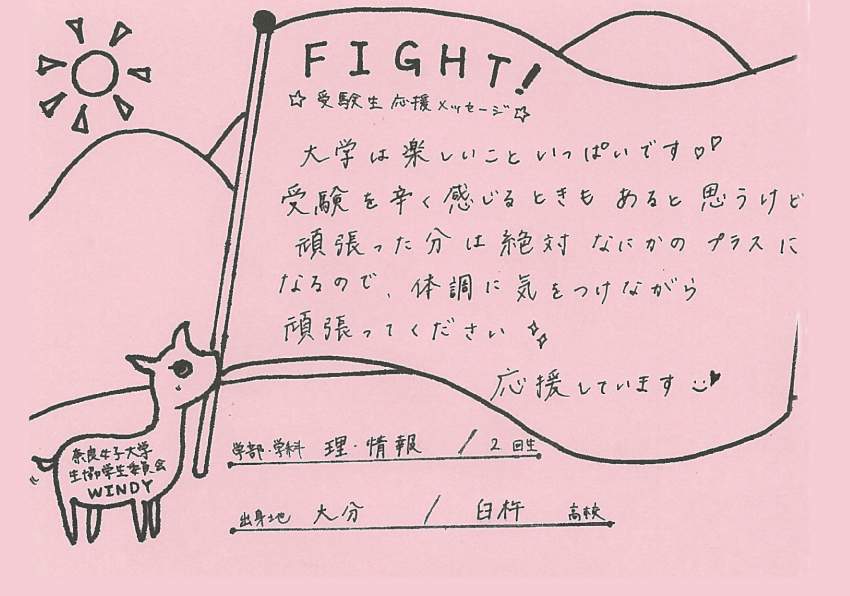 FIGHT!
☆受験生応援メッセージ☆
大学は楽しいこといっぱいです♡♡
受験を辛く感じるときもあると思うけど
頑張った分は絶対なにかのプラスに
なるので、体調に気をつけながら
頑張ってください
応援しています
学部・学科 理・情報 / 2 回生
出身地 大分 / 臼杵 高校
奈良女子大学
生協学生委員会
WINDY